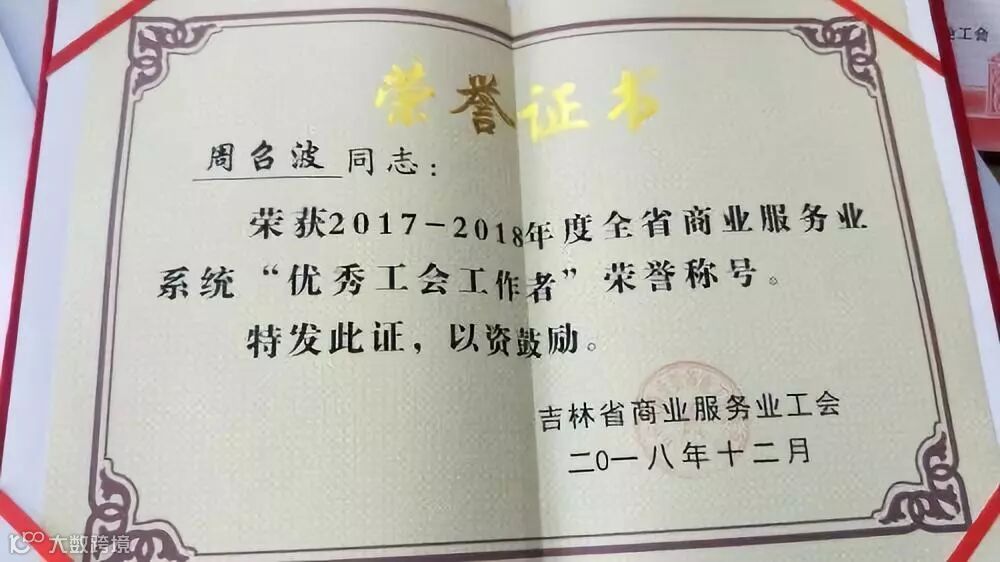 荣誉证书
周刍波同志：
荣获2017-2018年度全省商业服务业
系统“优秀工会工作者”荣誉称号。
特发此证，以资鼓励。
吉林省商业服务业工会
二0一八年十二月
工会
大数跨境